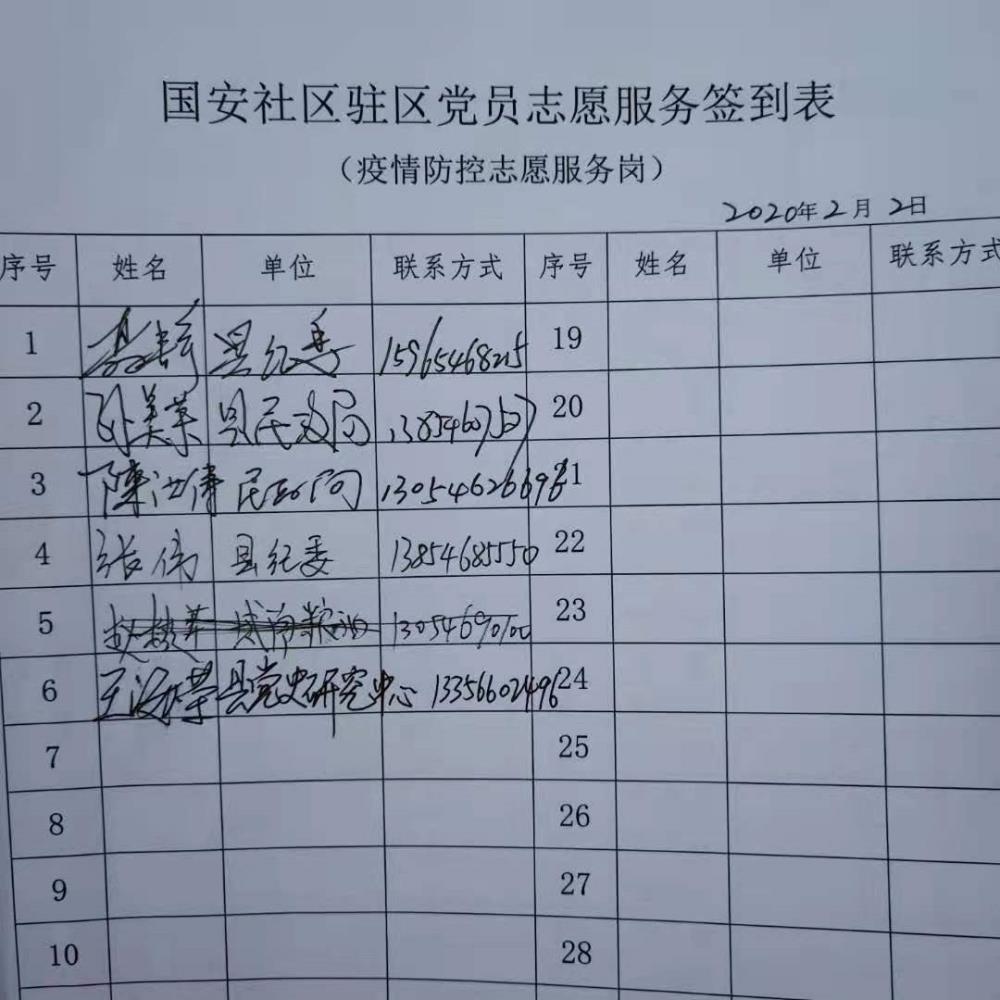 国安社区驻区党员志愿服务签到表
（疫情防控志愿服务岗）
2020年2月2日
序号 姓名 单位 联系方式 序号 姓名 单位 联系方式
1 县纪委 15965468215 19
2 孙美英 县民政局 20
3 陈 伟 民政局 13054626696 21
4 张伟 县纪委 13854685550 22
5 13054690100 23
6 王海荣 县党史研究中心 13356602496 24
7 25
8 26
9 27
10 28